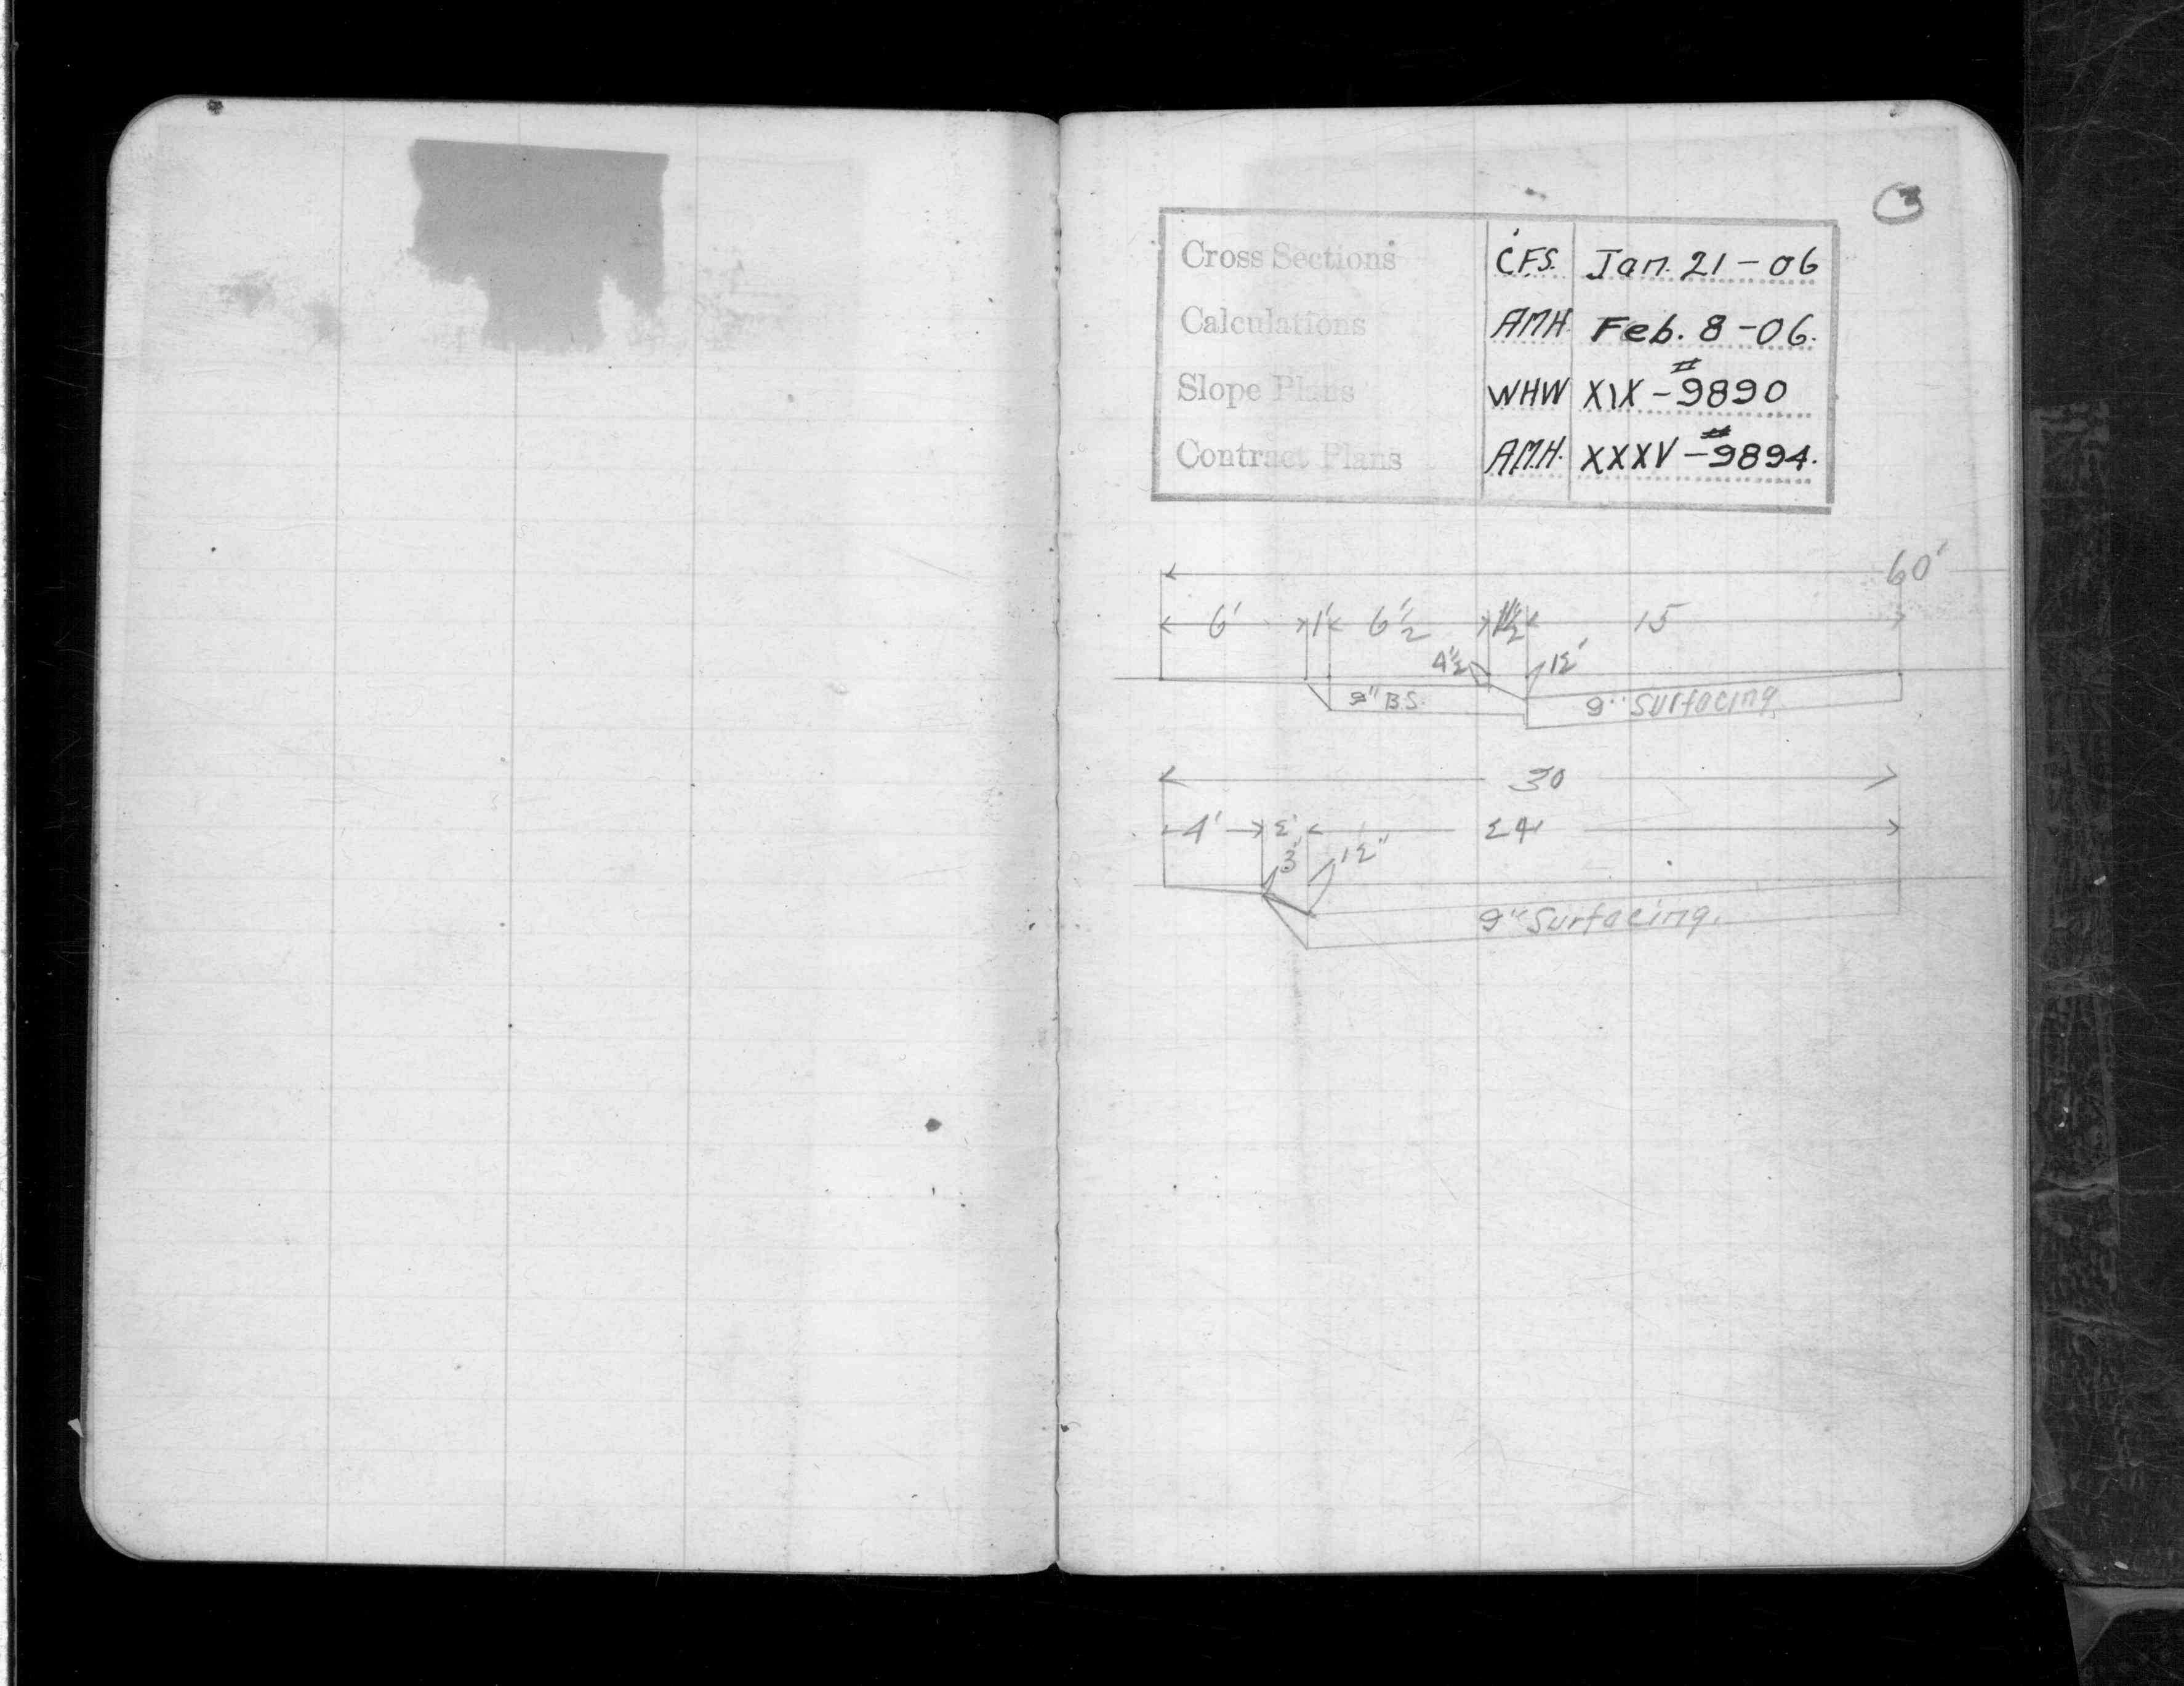 3
Cross Sections CFS. Jan. 21-06
Calculations AMH. Feb. 8-06.
Slope Plans WHW XIX-#9890
Contract Plans A.M.H. XXXV-#9894.
60'
6' 1' 6½' 1½' 15
4½" 12"
9" B.S. 9" Surfacing.
30
4' 2' 24
3" 12"
9" Surfacing.